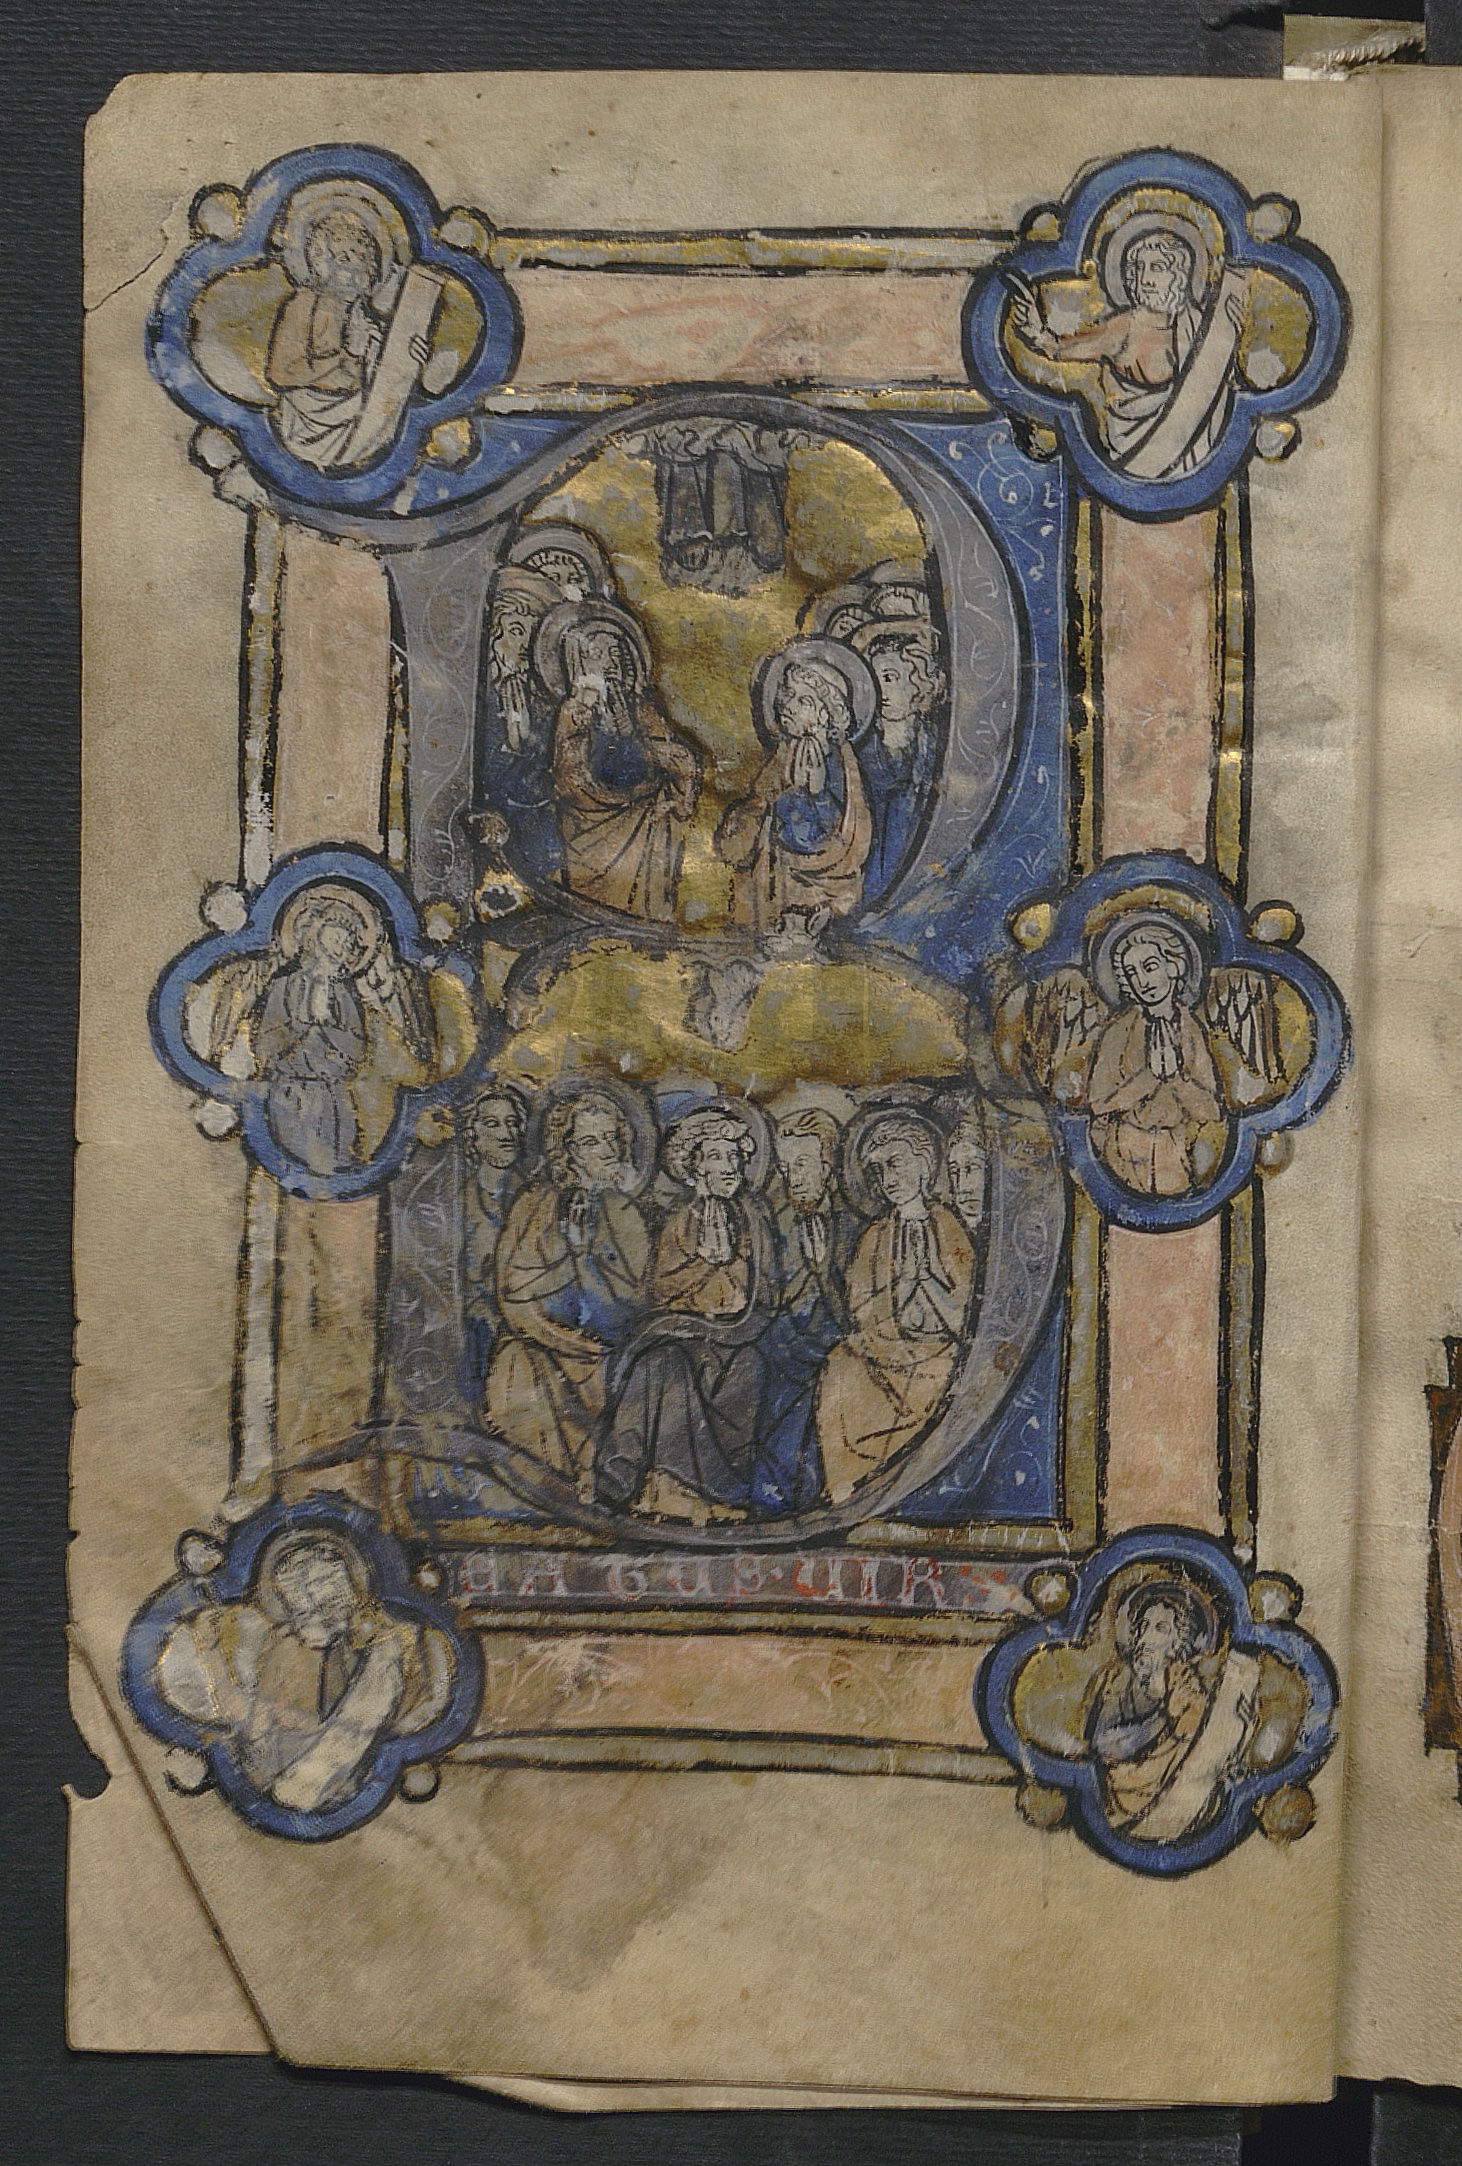 B
EATUS·UIR